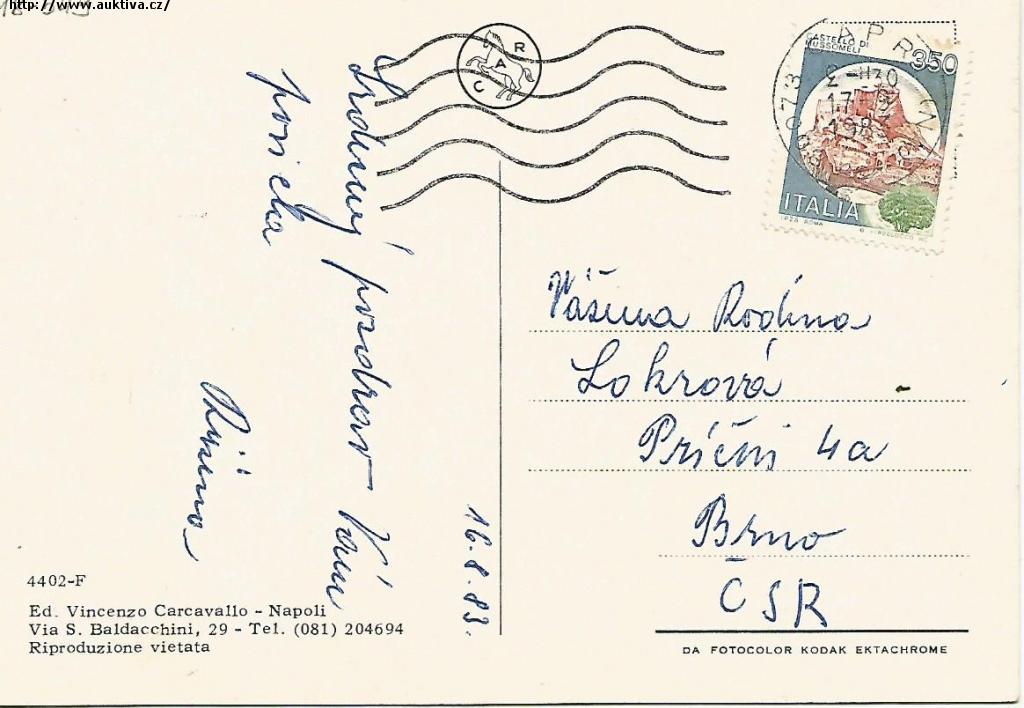 http://www.auktiva.cz/
CASTELLO DI
MUSSOMELI
350
ITALIA
ROMA
CAPRI
80073
17
1983
ARC
Srdečný pozdrav Vám
posílá
Růžena
16.8.83.
Vážená Rodina
Lokrová
Príční 4a
Brno
ČSR
4402-F
Ed. Vincenzo Carcavallo - Napoli
Via S. Baldacchini, 29 - Tel. (081) 204694
Riproduzione vietata
DA FOTOCOLOR KODAK EKTACHROME